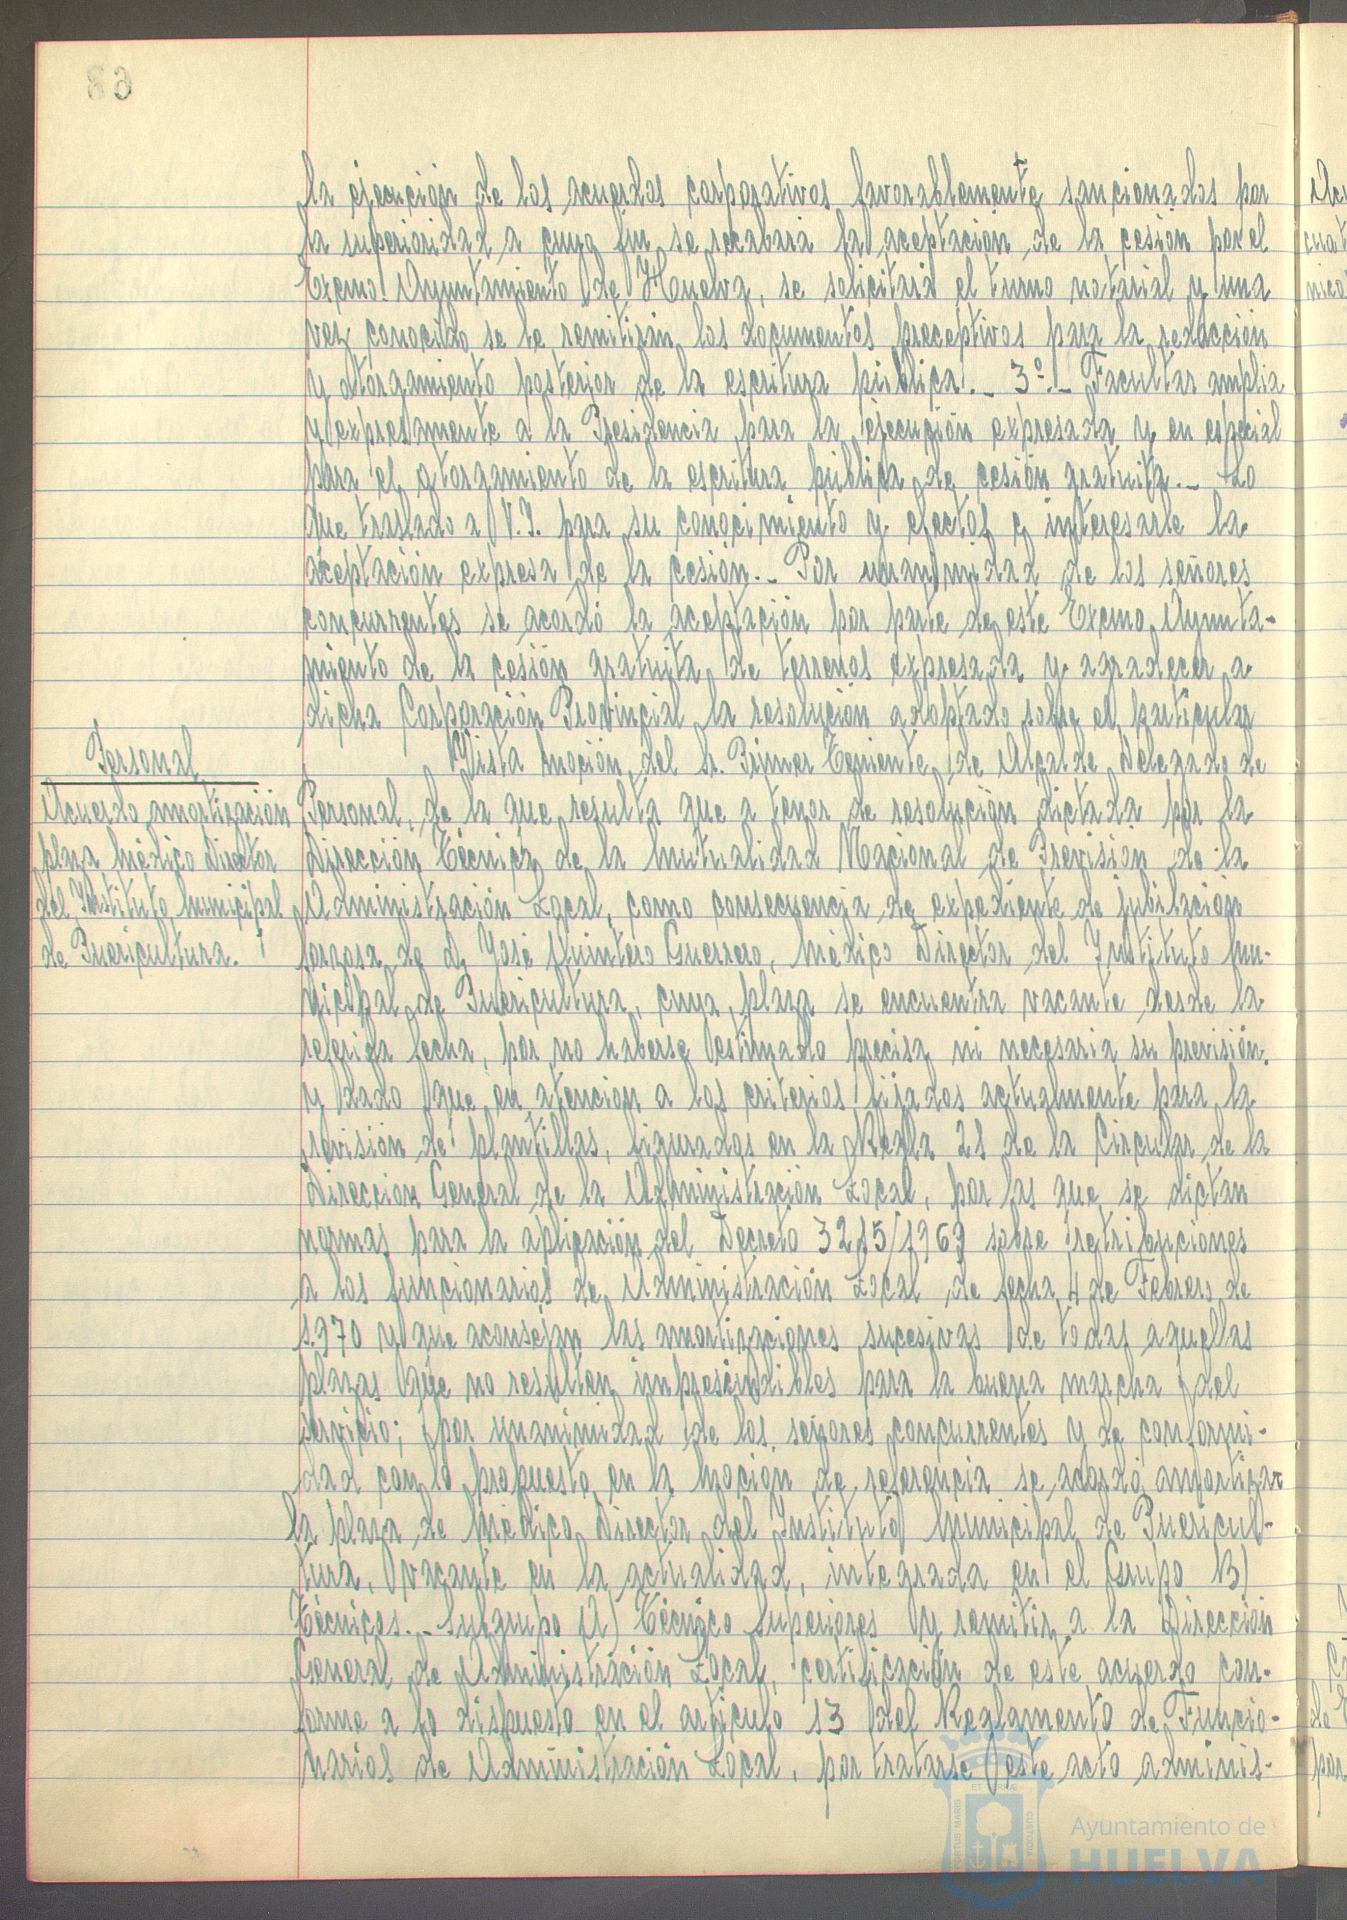 la ejecución de los acuerdos corporativos favorablemente sancionados por
la superioridad a cuyo fin se recabará la aceptación de la cesión por el
Excmo. Ayuntamiento de Huelva, se solicitará el turno notarial y una
vez conocido se le remitirán los documentos preceptivos para la redacción
y otorgamiento posterior de la escritura pública._ 3º._ Facultar amplia
y expresamente a la Presidencia para la ejecución expresada y en especial
para el otorgamiento de la escritura pública de cesión gratuita._ Lo
que traslado a V.I. para su conocimiento y efectos e interesarle la
aceptación expresa de la cesión._ Por unanimidad de los señores
concurrentes se acordó la aceptación por parte de este Excmo. Ayunta-
miento de la cesión gratuita de terrenos expresada y agradecer a
dicha Corporación Provincial la resolución adoptado sobre el particular
Personal
Acuerdo amortización
plaza Médico Director
del Instituto Municipal
de Puericultura.
Vista moción del Sr. Primer Teniente de Alcalde Delegado de
Personal, de la que resulta que a tenor de resolución dictada por la
Dirección Técnica de la Mutualidad Nacional de Previsión de la
Administración Local, como consecuencia de expediente de jubilación
forzosa de D. José Quintero Guerrero, Médico Director del Instituto Mu-
nicipal de Puericultura, cuya plaza se encuentra vacante desde la
referida fecha, por no haberse estimado precisa ni necesaria su previsión.
y dado que en atención a los criterios fijados actualmente para la
revisión de plantillas, figurados en la Regla 21 de la Circular de la
Dirección General de la Administración Local, por las que se dictan
normas para la aplicación del Decreto 3215/1969 sobre retribuciones
a los funcionarios de Administración Local, de fecha 4 de Febrero de
1.970 y que aconsejan las amortizaciones sucesivas de todas aquellas
plazas que no resulten imprescindibles para la buena marcha del
servicio; por unanimidad de los señores concurrentes y de conformi-
dad con lo propuesto en la moción de referencia se acordó amortizar
la plaza de Médico Director del Instituto Municipal de Puericul-
tura, vacante en la actualidad, integrada en el Grupo B)
Técnicos._ Subgrupo A) Técnico Superiores y remitir a la Dirección
General de Administración Local, certificación de este acuerdo con-
forme a lo dispuesto en el artículo 13 del Reglamento de Funcio-
narios de Administración Local, por tratarse este acto adminis-
Ayuntamiento de
HUELVA